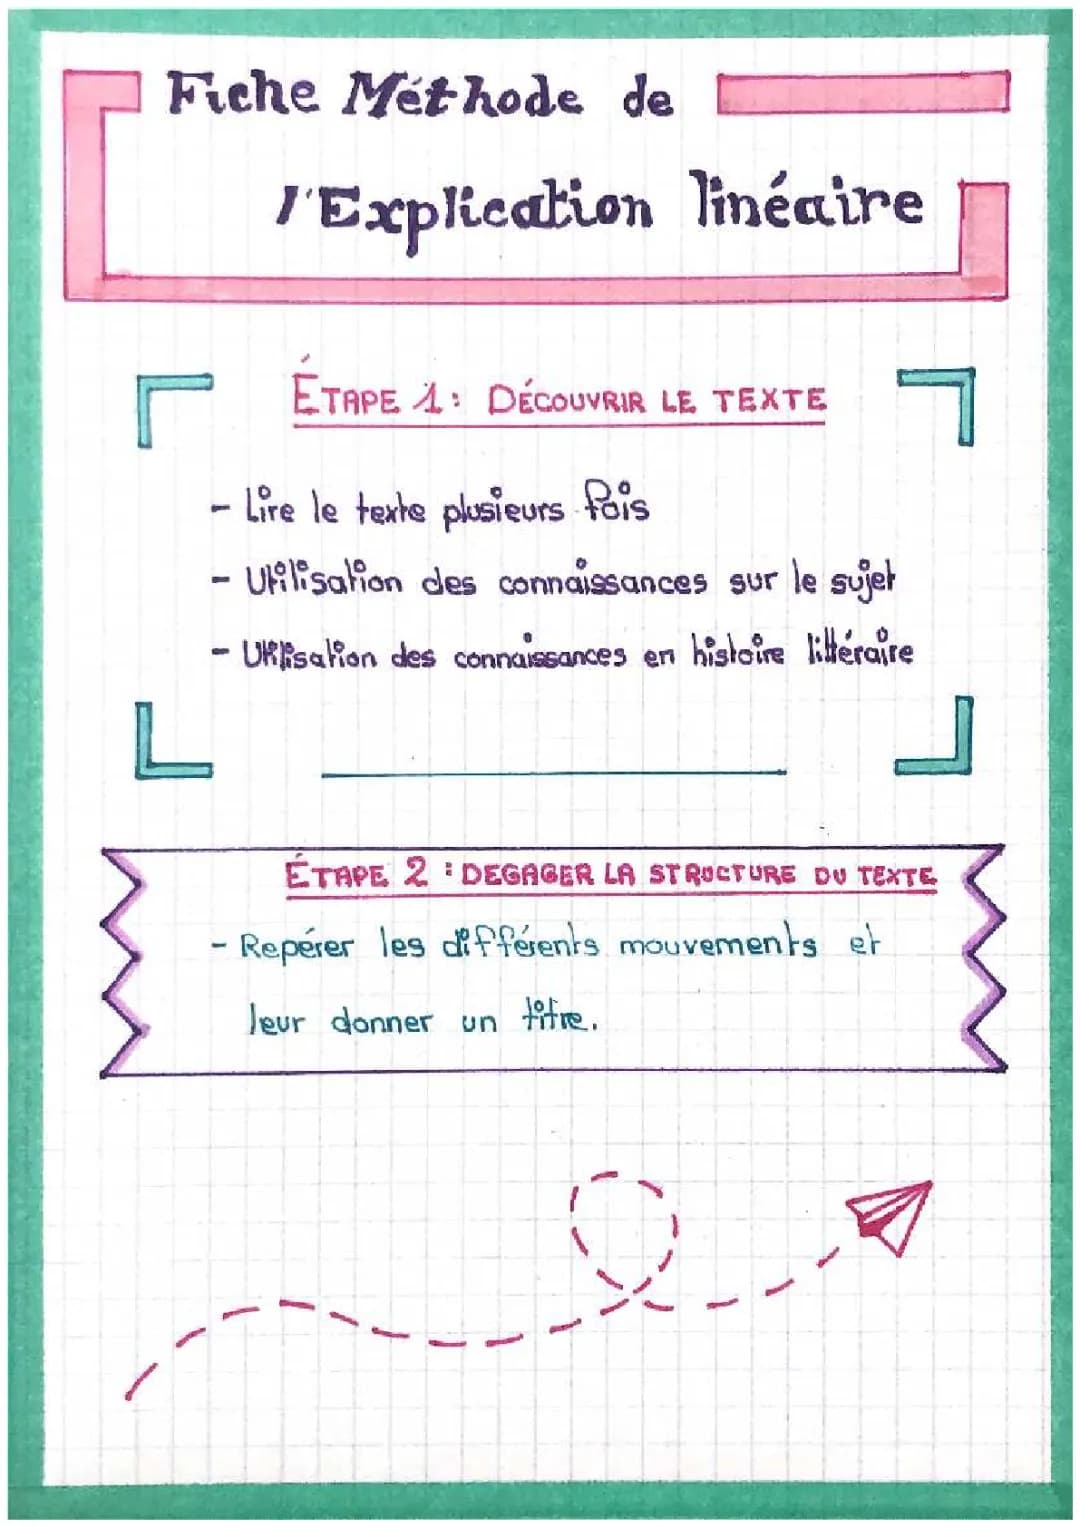 Fiche Méthode de
l'Explication linéaire
ÉTAPE 1: DÉCOUVRIR LE TEXTE
- Lire le texte plusieurs fois
- Utilisation des connaissances sur le sujet
- Utilisation des connaissances en histoire littéraire
ÉTAPE 2 : DEGAGER LA STRUCTURE DU TEXTE
- Repérer les différents mouvements et
leur donner un titre.